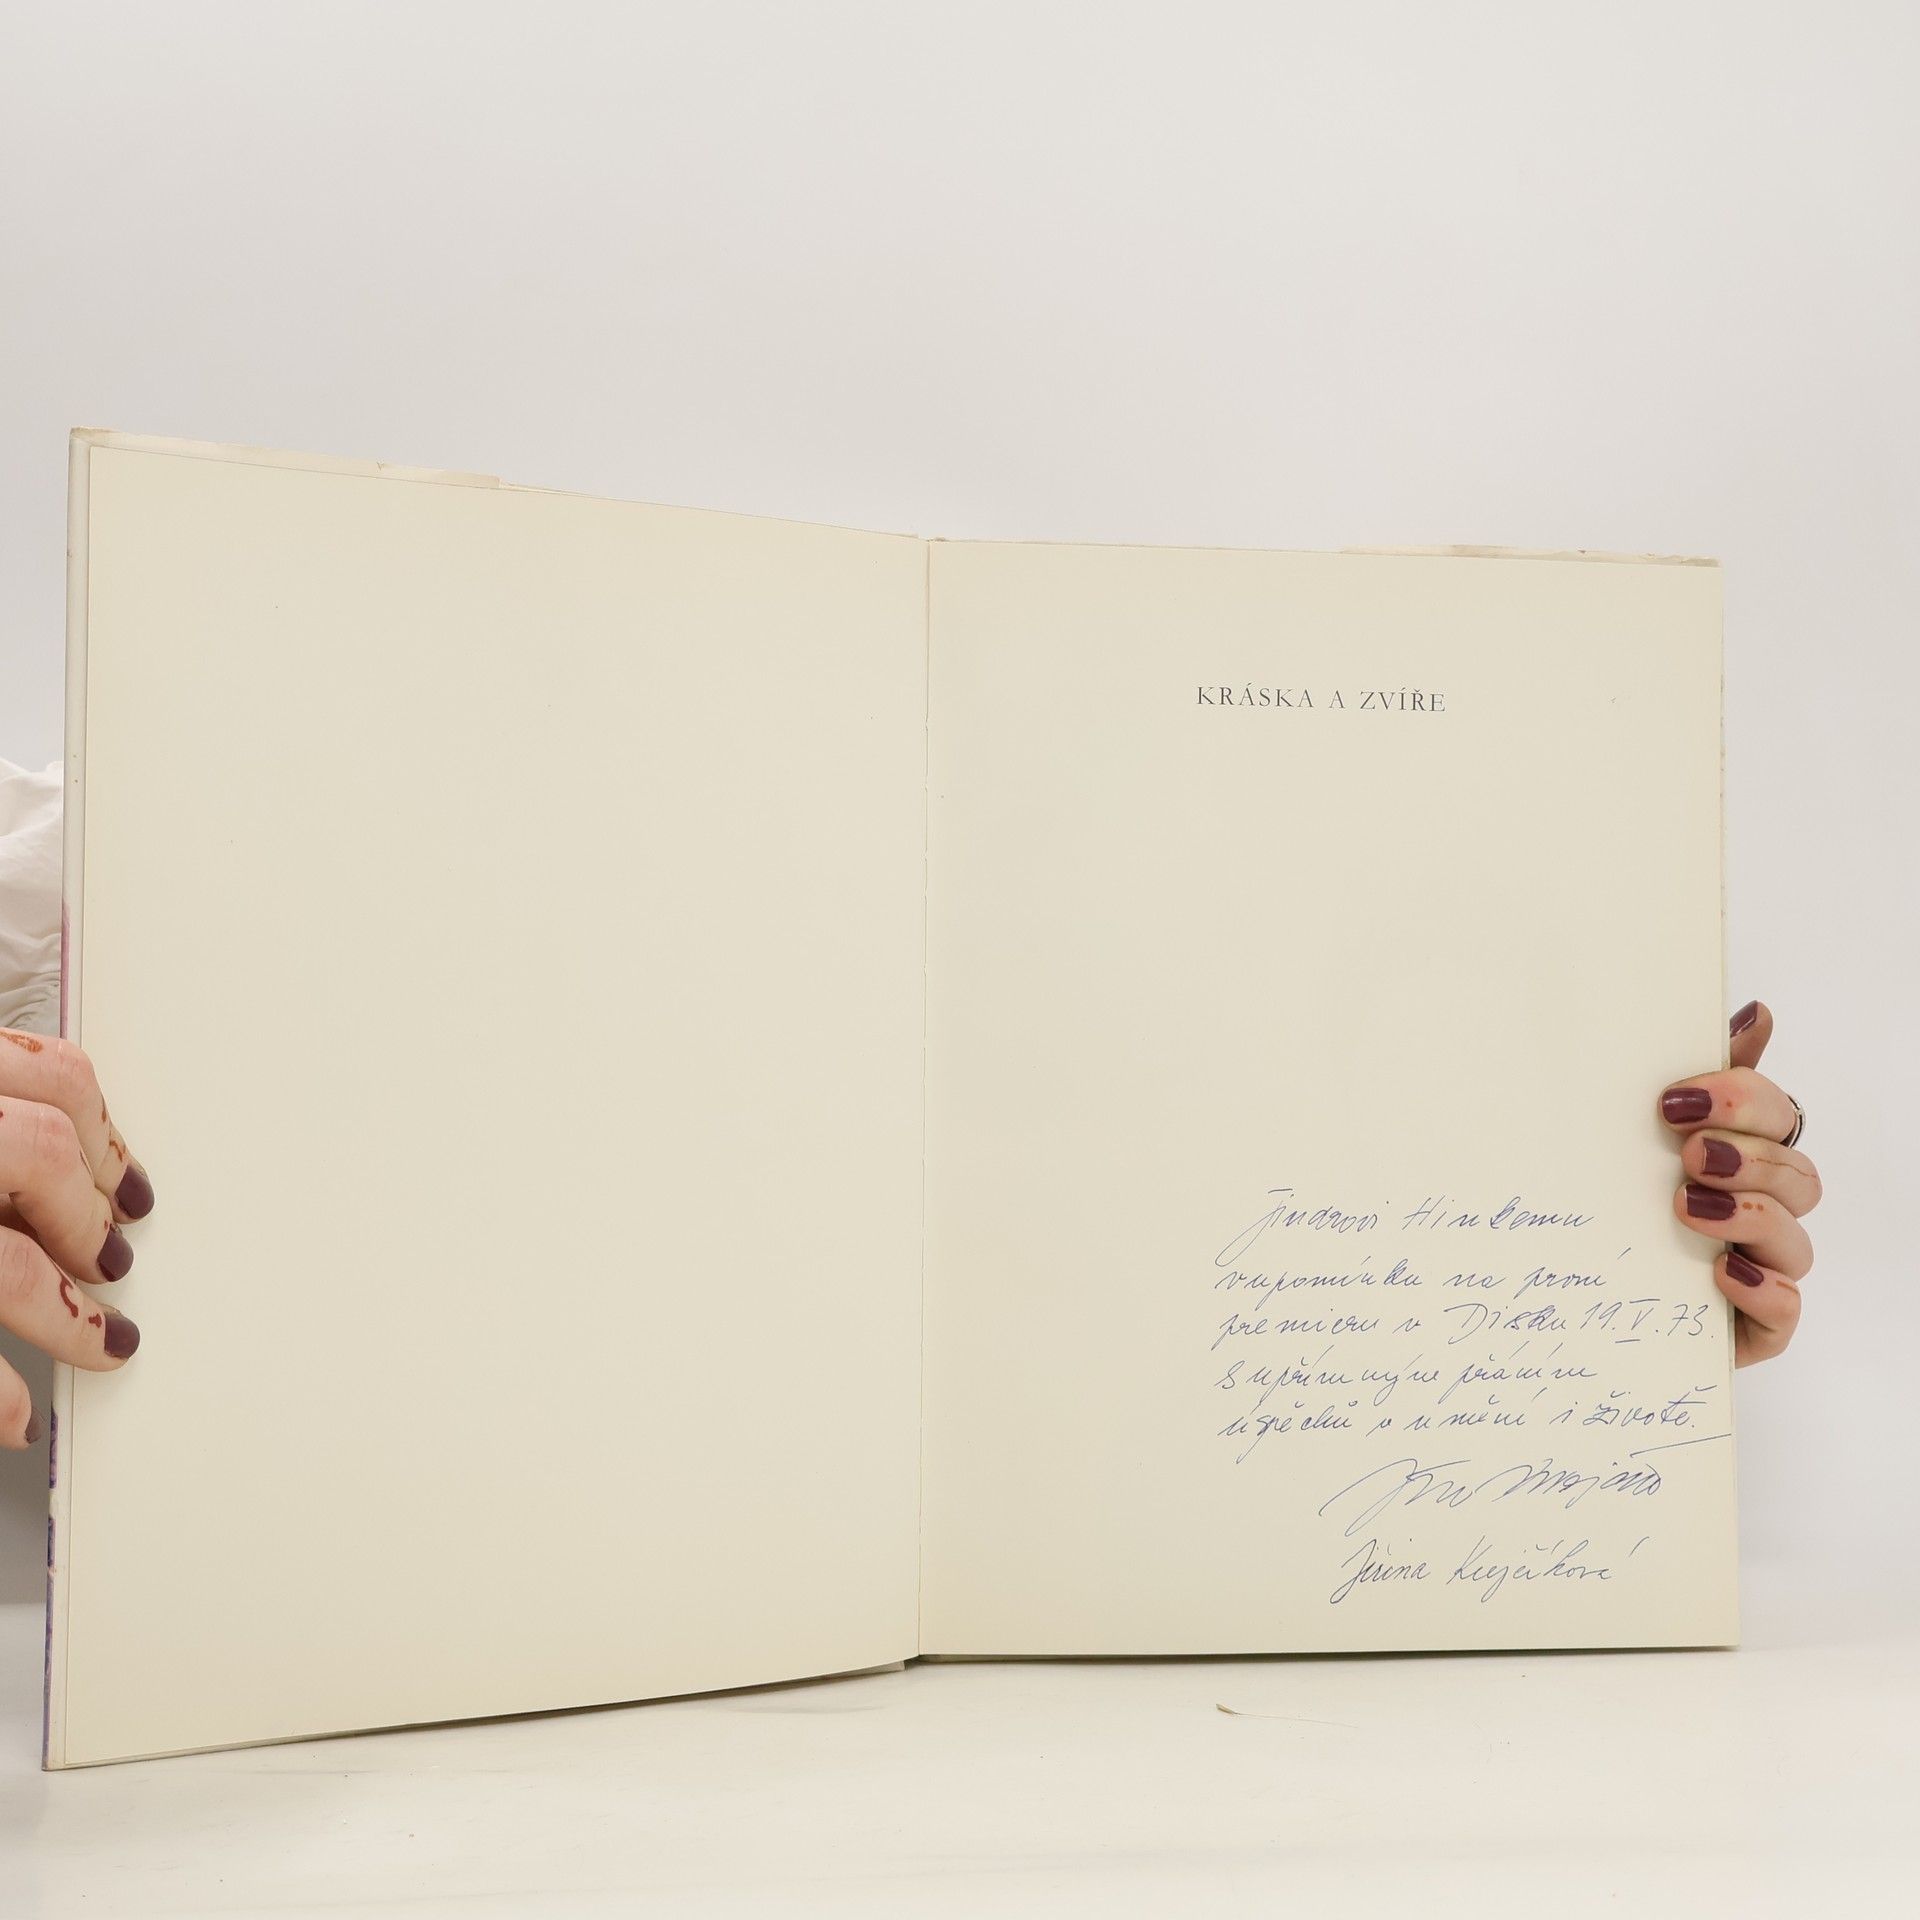 KRÁSKA A ZVÍŘE
Jindrovi Hinkemu
vzpomínka na první
premieru v Disku 19. V. 73.
s upřímným přáním
úspěchů v umění i životě.
Jiřina Krejčíková